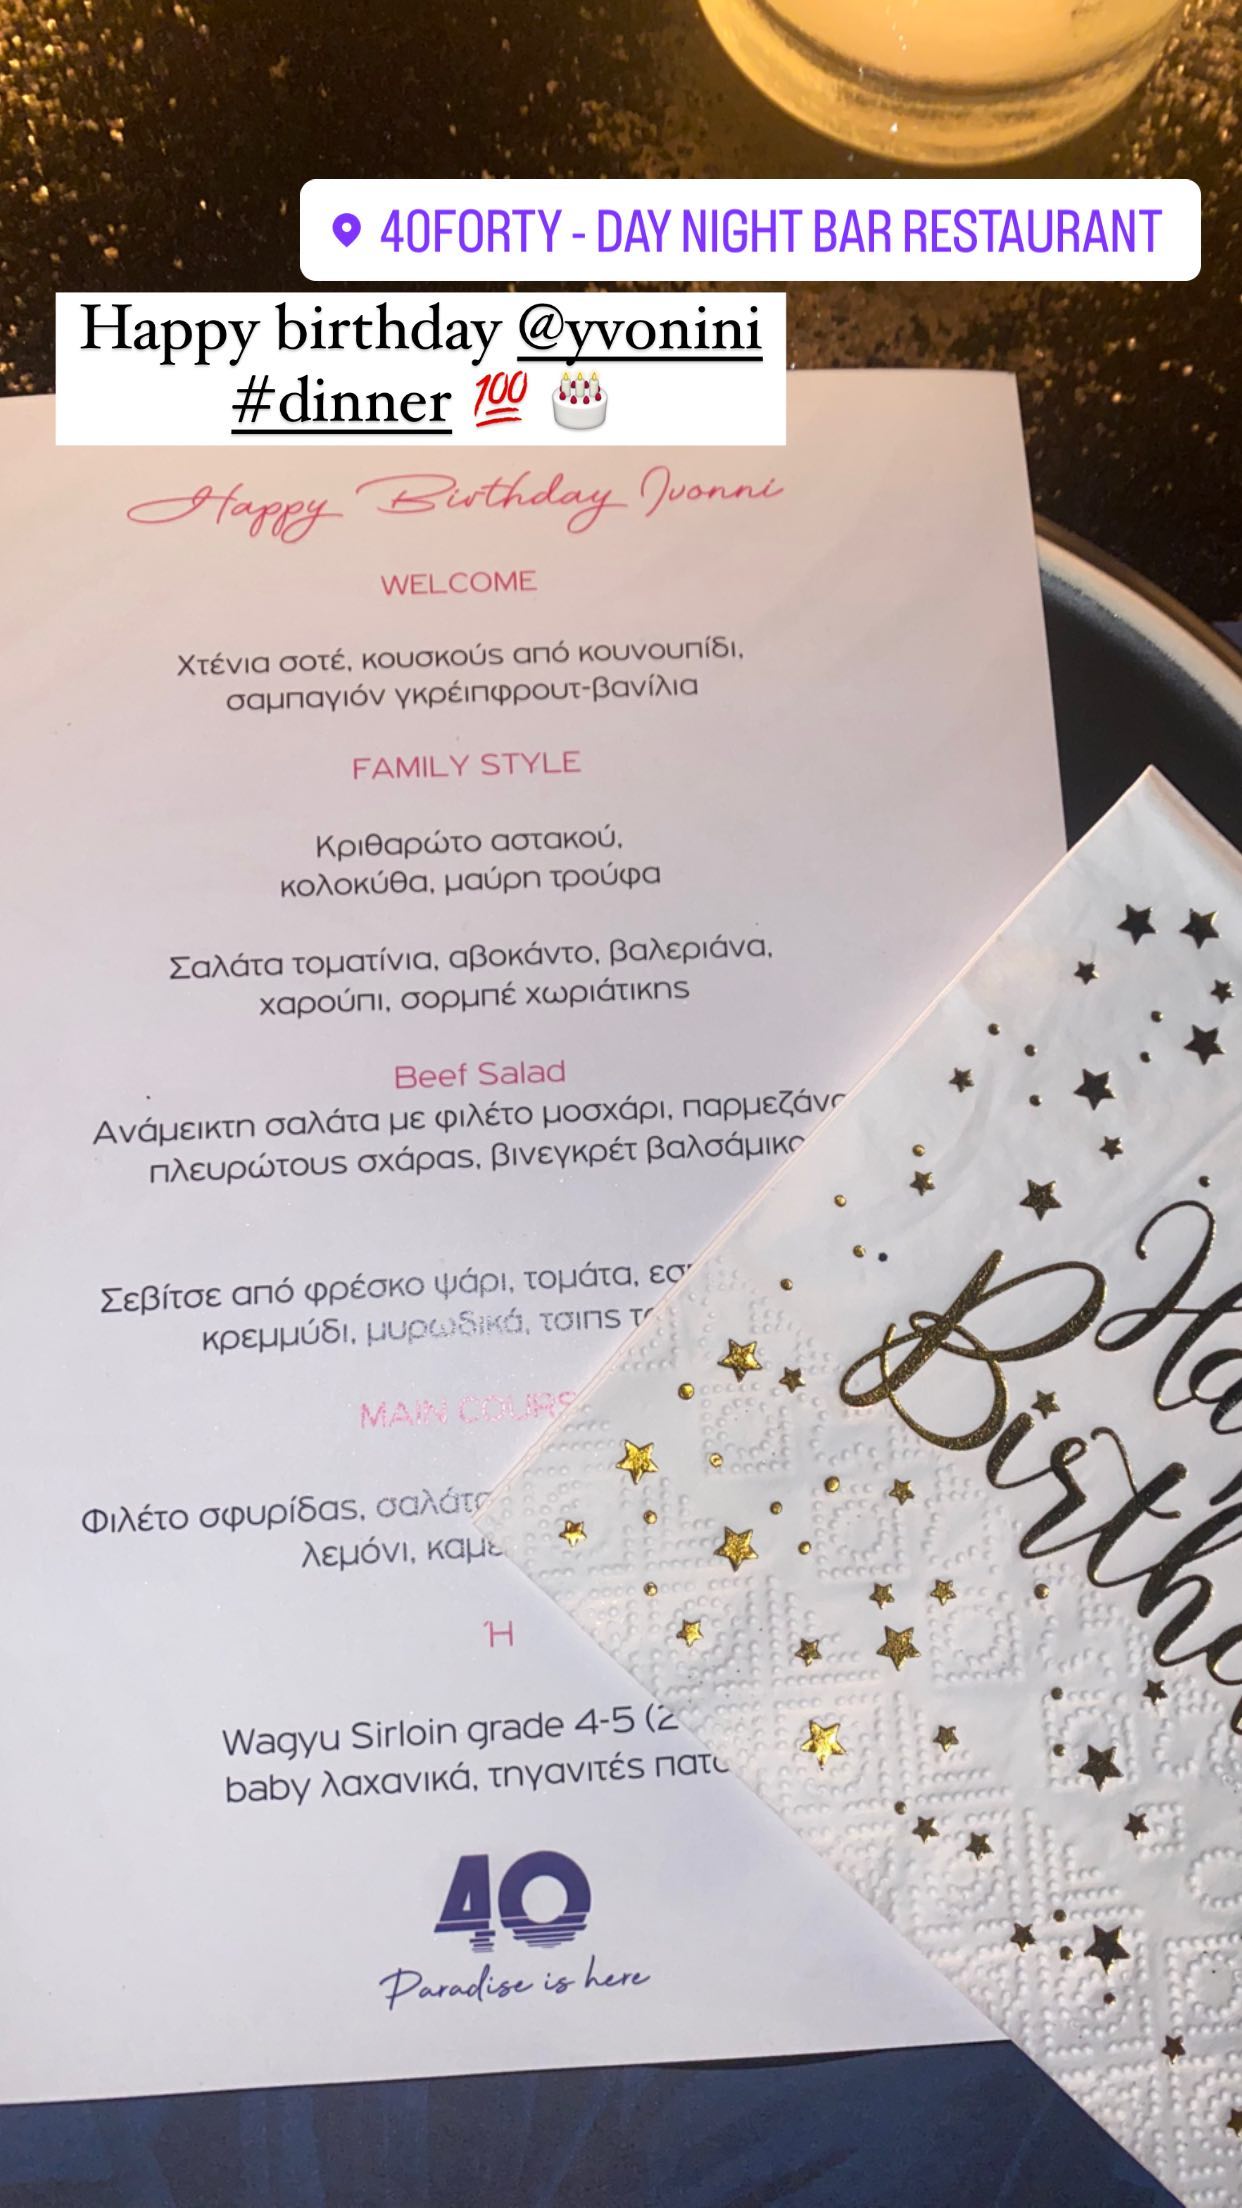 40FORTY - DAY NIGHT BAR RESTAURANT
Happy birthday @yvonini
#dinner 💯 🎂
Happy Birthday Ivonni
WELCOME
Χτένια σοτέ, κουσκούς από κουνουπίδι,
σαμπαγιόν γκρέιπφρουτ-βανίλια
FAMILY STYLE
Κριθαρώτο αστακού,
κολοκύθα, μαύρη τρούφα
Σαλάτα τοματίνια, αβοκάντο, βαλεριάνα,
χαρούπι, σορμπέ χωριάτικης
Beef Salad
Ανάμεικτη σαλάτα με φιλέτο μοσχάρι,
πλευρώτους σχάρας, βινεγκρέτ
Σεβίτσε από φρέσκο ψάρι, τομάτα,
κρεμμύδι, μυρωδικά, τσιπς
MAIN
Φιλέτο σφυρίδας,
λεμόνι,
Ή
Wagyu Sirloin grade 4-5
baby λαχανικά, τηγανιτές
40
Paradise is here